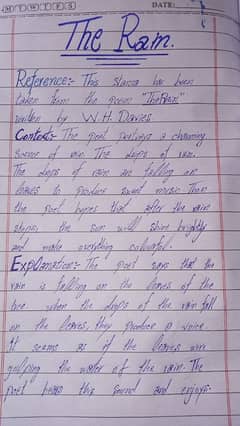 M T W T F S DATE:
The Rain.
Reference:- This stanza has been
taken from the poem "The Rain"
written by W.H. Davies.
Context:- The poet portrays a charming
scene of rain. The drops of rain.
The drops of rain are falling on
leaves to produce sweet music. Then
the poet hopes that after the rain
stops, the sun will shine brightly
and make everything colourful.
Explanation:- The poet says that the
rain is falling on the leaves of the
tree when the drops of the rain fall
on the leaves, they produce a voice.
It seems as if the leaves are
gulping the water of the rain. The
poet hears this sound and enjoys.